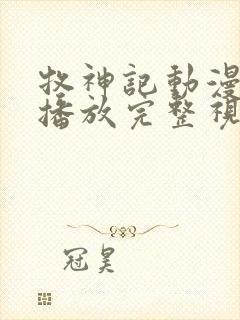 牧神記動漫
播放完整視
冠昊